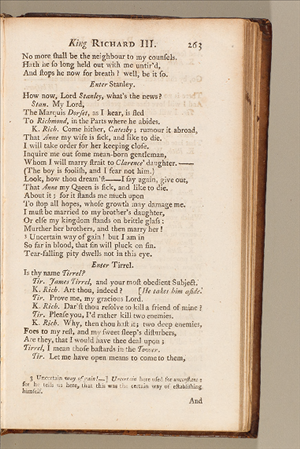 King RICHARD III. 263
No more ſhall be the neighbour to my counſels.
Hath he ſo long held out with me untir'd,
And ſtops he now for breath? well, be it ſo.
Enter Stanley.
How now, Lord Stanley, what's the news?
Stan. My Lord,
The Marquis Dorſet, as I hear, is fled
To Richmond, in the Parts where he abides.
K. Rich. Come hither, Catesby; rumour it abroad,
That Anne my wife is ſick, and like to die.
I will take order for her keeping cloſe.
Inquire me out ſome mean-born gentleman,
Whom I will marry ſtrait to Clarence' daughter.——
(The boy is fooliſh, and I fear not him.)
Look, how thou dream'ſt——I ſay again, give out,
That Anne my Queen is ſick, and like to die.
About it; for it ſtands me much upon
To ſtop all hopes, whoſe growth may damage me.
I muſt be married to my brother's daughter,
Or elſe my kingdom ſtands on brittle glaſs:
Murther her brothers, and then marry her!
3 Uncertain way of gain! but I am in
So far in blood, that ſin will pluck on ſin.
Tear-falling pity dwells not in this eye.
Enter Tirrel.
Is thy name Tirrel?
Tir. James Tirrel, and your moſt obedient Subject.
K. Rich. Art thou, indeed? [He takes him aſide.
Tir. Prove me, my gracious Lord.
K. Rich. Dar'ſt thou reſolve to kill a friend of mine?
Tir. Pleaſe you, I'd rather kill two enemies.
K. Rich. Why, then thou haſt it; two deep enemies,
Foes to my reſt, and my ſweet ſleep's diſturbers,
Are they, that I would have thee deal upon;
Tirrel, I mean thoſe baſtards in the Tower.
Tir. Let me have open means to come to them,
3 Uncertain way of gain!—] Uncertain here uſed for
for he tells us here, that this was the certain way of eſtabliſhing
himſelf.
And